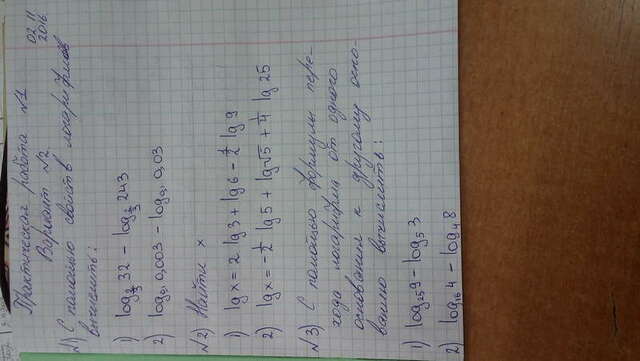 Практическая работа №1
02.11
Вариант №2.
2016
№1) С помощью свойств логарифмов
вычислить:
1) log_{2/3} 32 − log_{2/3} 243
2) log_{0,1} 0,003 − log_{0,1} 0,03
№2) Найти x
1) lg x = 2 lg 3 + lg 6 − 1/2 lg 9
2) lg x = −1/2 lg 5 + lg √5 + 1/4 lg 25
№3) С помощью формулы пере-
хода логарифма от одного
основания к другому осно-
ванию вычислить:
1) log_{25} 9 − log_5 3
2) log_{16} 4 − log_4 8